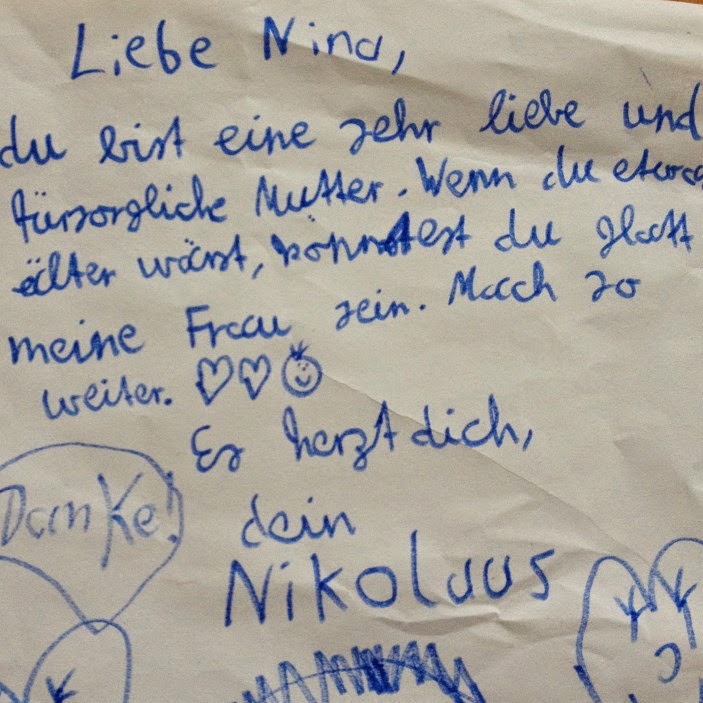 Liebe Nina,
du bist eine sehr liebe und
fürsorgliche Mutter. Wenn du etwas
älter wärst, könntest du glatt
meine Frau sein. Mach so
weiter. ♡♡☺
Es herzt dich,
Danke!
dein
Nikolaus